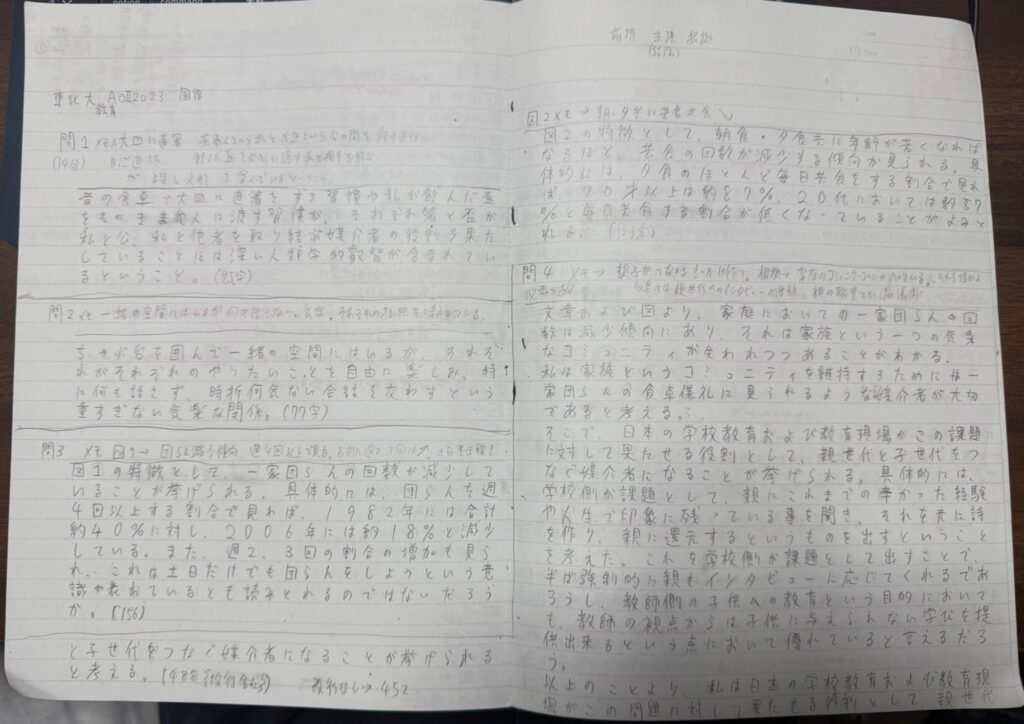 東北大 AOⅡ2023
教育
問1
昔の食卓で大皿に直箸をする習慣や私が飲んだ盃
をそのまま他人に渡す習慣が、それぞれ箸と盃が
私と公、私と他者を取り結ぶ媒介者の役割を果た
していることには深い人類学的叡智が含まれてい
るということ。(95字)
問2 メモ 一緒の空間にはいるが
ちゃぶ台を囲んで一緒の空間にはいるが、それぞ
れがそれぞれのやりたいことを自由に楽しみ、特
に何も話さず、時折何気ない会話を交わすという
重すぎない気楽な関係。(77字)
問3 メモ 図1→団らん減少傾向
図1の特徴として、一家団らんの回数が減少して
いることが挙げられる。具体的には、団らんを週
4回以上する割合で見れば、1982年には合計
約40%に対し、2006年には約18%と減少
している。また、週2、3回の割合の増加も見ら
れ、これは土日だけでも団らんをしようという意
識が表れているとも読みとれるのではないだろう
か。(156)
と子世代をつなぐ媒介者になることが挙げられる
と考える。
改行なし→452
図2メモ→朝・夕共に若者共食↘
図2の特徴として、朝食・夕食共に年齢が若くなれば
なるほど、共食の回数が減少する傾向が見られる。具
体的には、夕食のほとんど毎日共食をする割合で見れ
ば、70才以上は約87%、20代においては約57
%と毎日共食する割合が低くなっていることがよみと
れる。(123字)
問4 メモ→ 親子がつながるきっかけ作り。
文章および図より、家庭においての一家団らんの回
数は減少傾向にあり、それは家族という一つの気楽
なコミュニティが失われつつあることがわかる。
私は家族というコミュニティを維持するためには一
家団らんの食卓儀礼に見られるような媒介者が大切
であると考える。
そこで、日本の学校教育および教育現場がこの課題
に対して果たせる役割として、親世代と子世代をつ
なぐ媒介者になることが挙げられる。具体的には、
学校側が課題として、親にこれまでの辛かった経験
や人生で印象に残っている事を聞き、それを元に詩
を作り、親に還元するというものを出すということ
を考えた。これを学校側が課題として出すことで、
半ば強制的に親もインタビューに応じてくれるであ
ろうし、教師側の子供への教育という目的において
も、教師の視点からは子供に与えられない学びを提
供出来るという点において優れていると言えるだろ
う。
以上のことより、私は日本の学校教育および教育現
場がこの問題に対して果たせる役割として、親世代